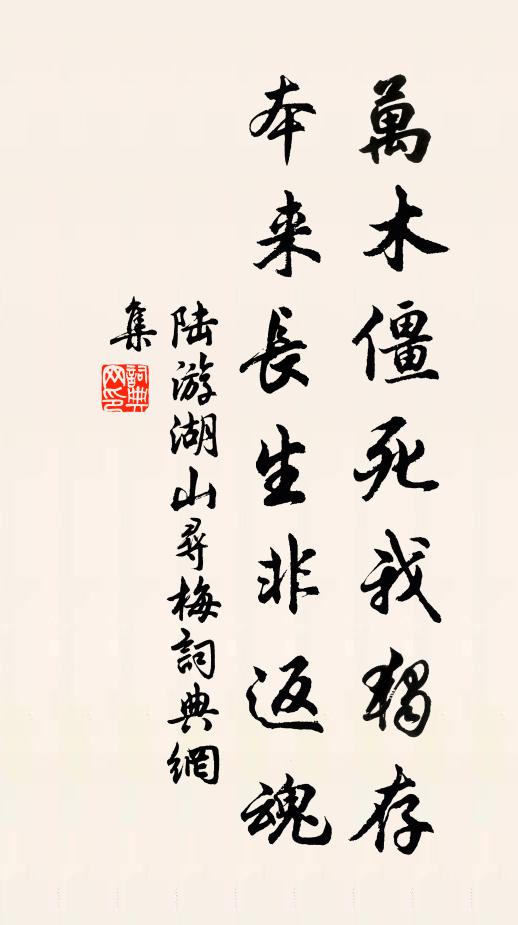 萬木僵死我獨存
本来長生非返魂
陆游湖山尋梅詞典網
集
詞典网印